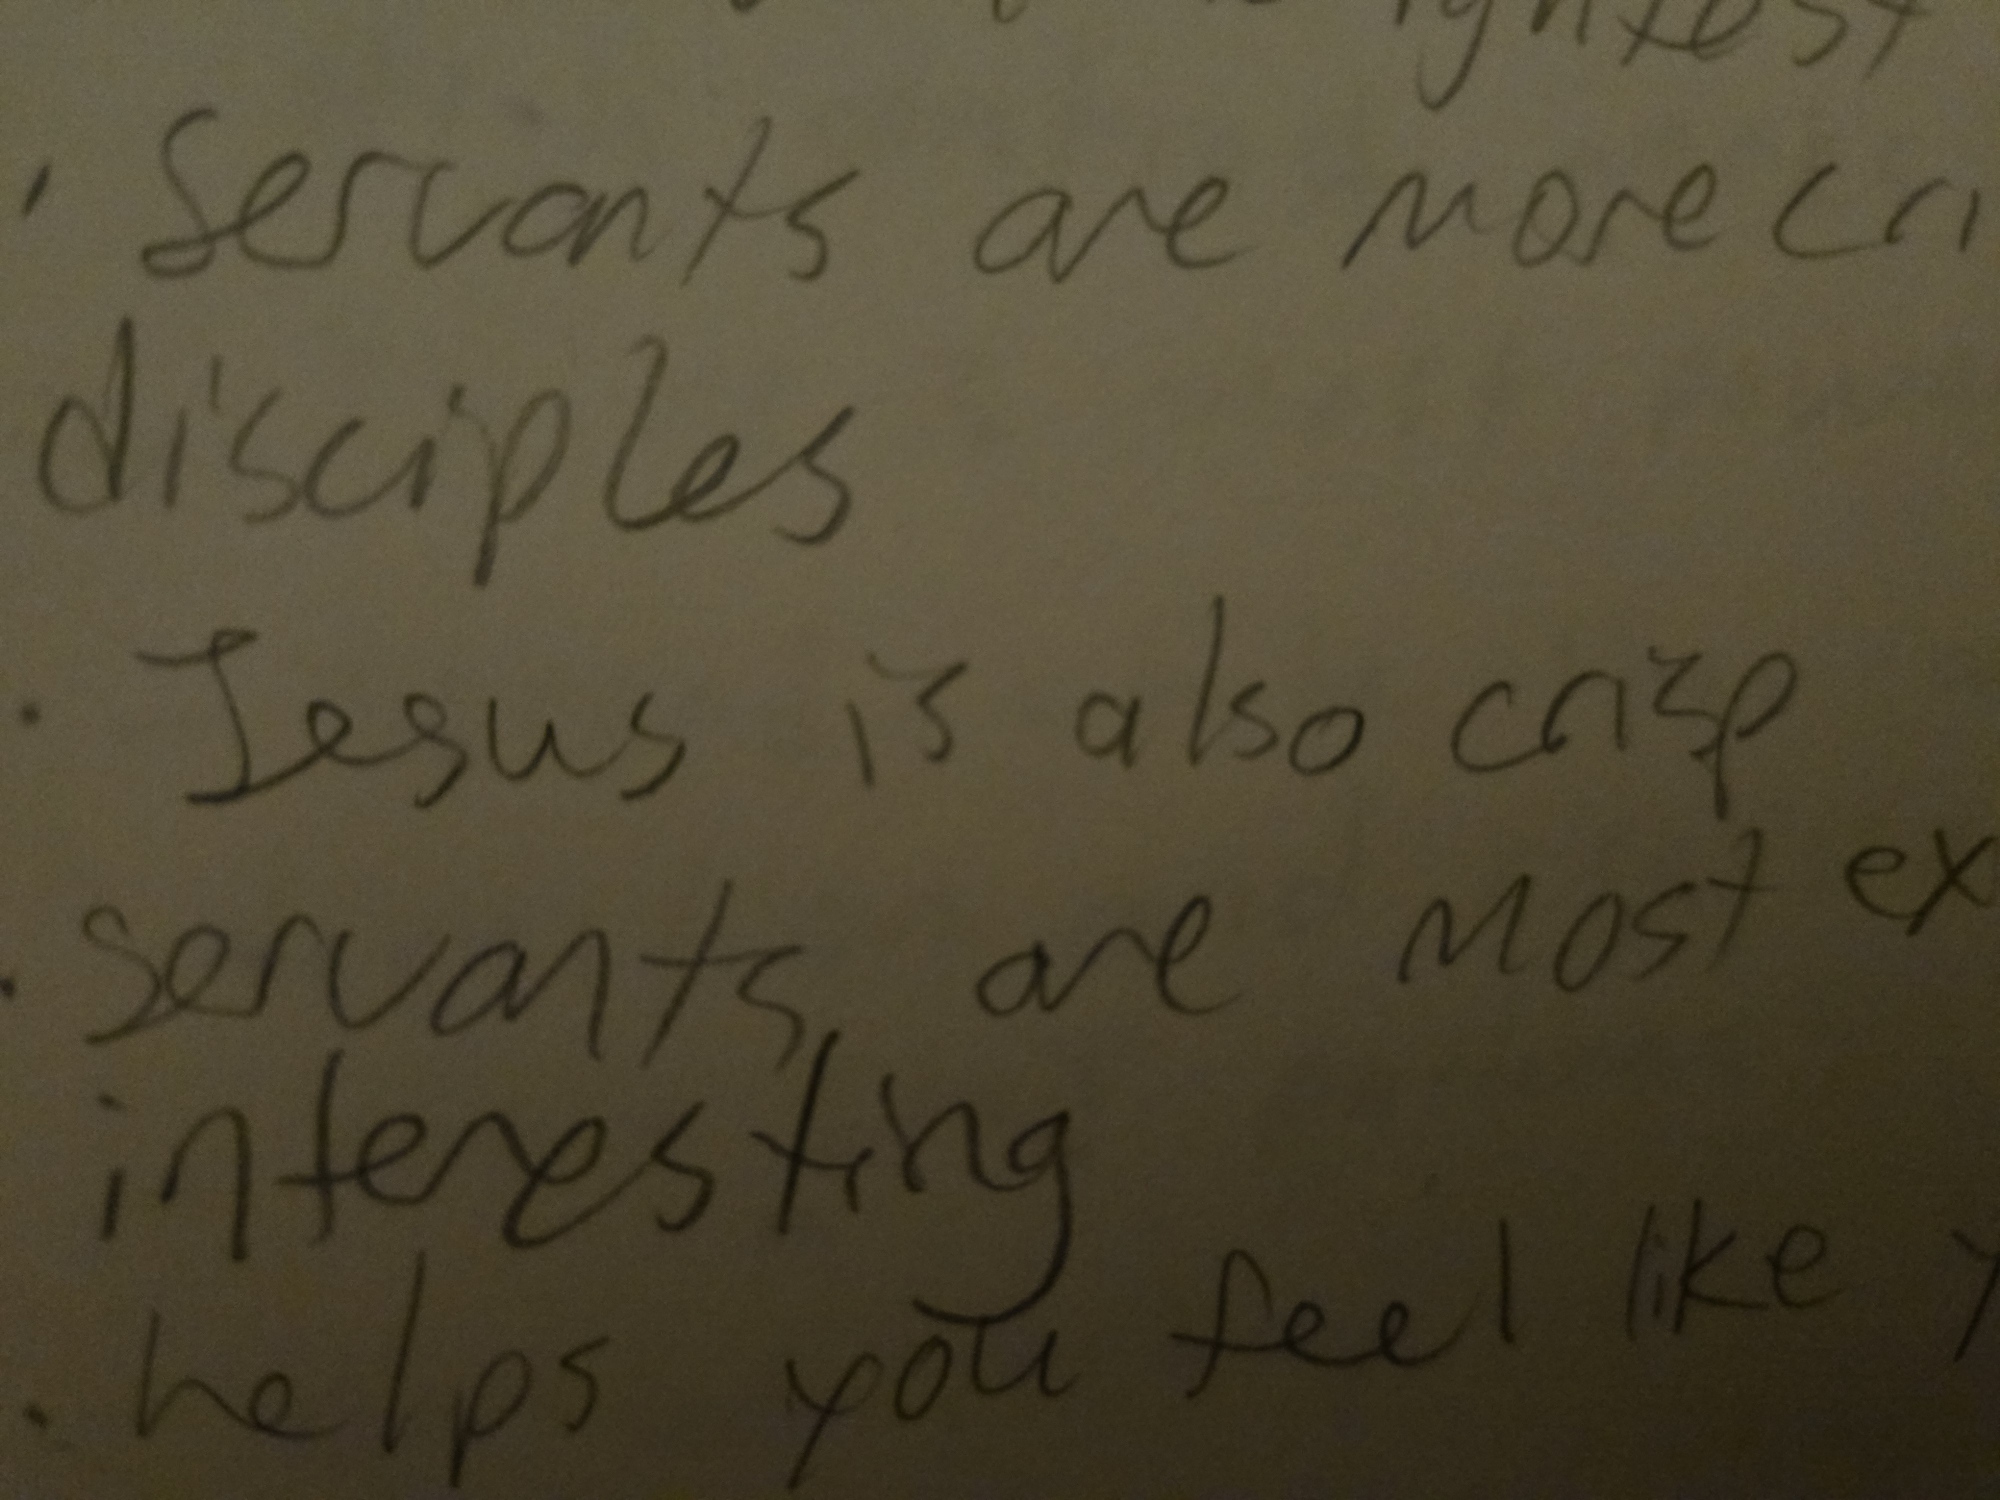 · Servants are more cri
disciples
· Jesus is also crisp
· Servants are most ex
interesting
· helps you feel like y